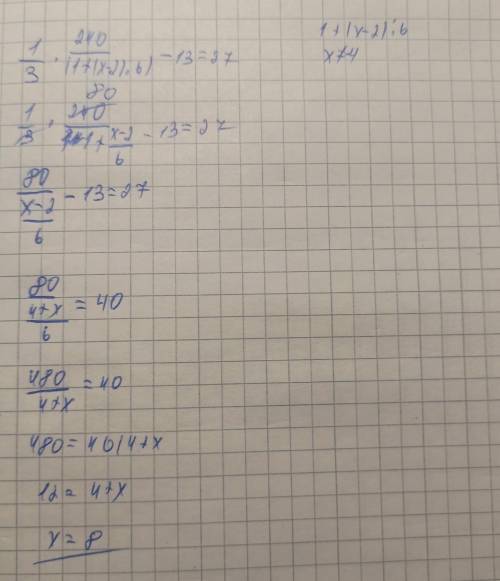 1/3 · 240/(1+(x-2):6) - 13 = 27
1+(x-2):6
x≠4
80
1/3 · 240/1+ x-2/6 - 13 = 27
80/ x-2/6 - 13 = 27
80/ 4+x/6 = 40
480/4+x = 40
480 = 40(4+x
12 = 4+x
x = 8